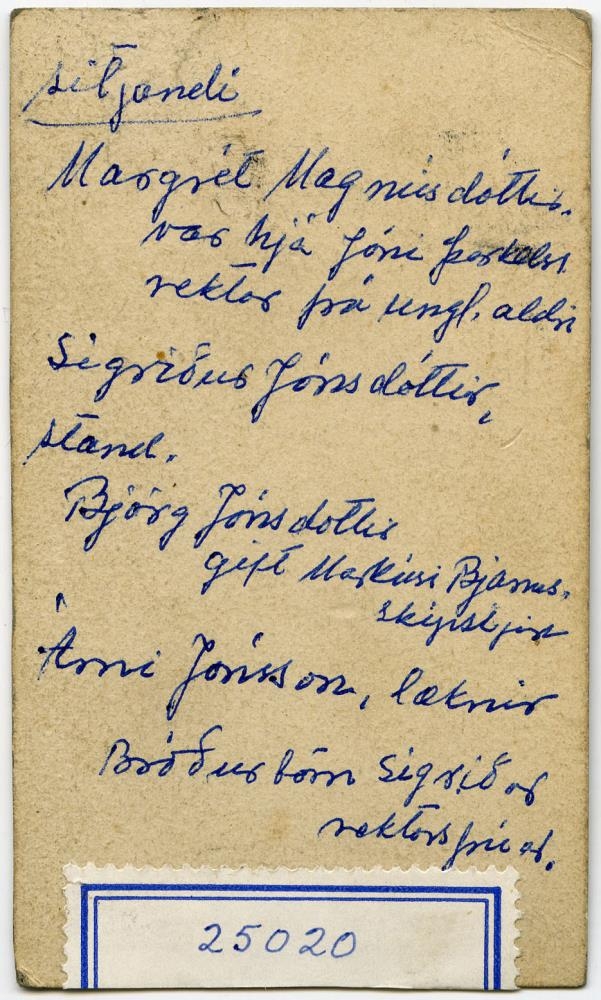 sitjandi
Margrét Magnúsdóttir.
var hjá Jóni Þorkelss.
rektor frá ungl. aldri
Sigríður Jónsdóttir,
stand.
Björg Jónsdottir
gift Markúsi Bjarnas.
skipstjóra
Árni Jónsson, læknir
Bróðurbörn Sigríðar
rektorsfrúar.
25020